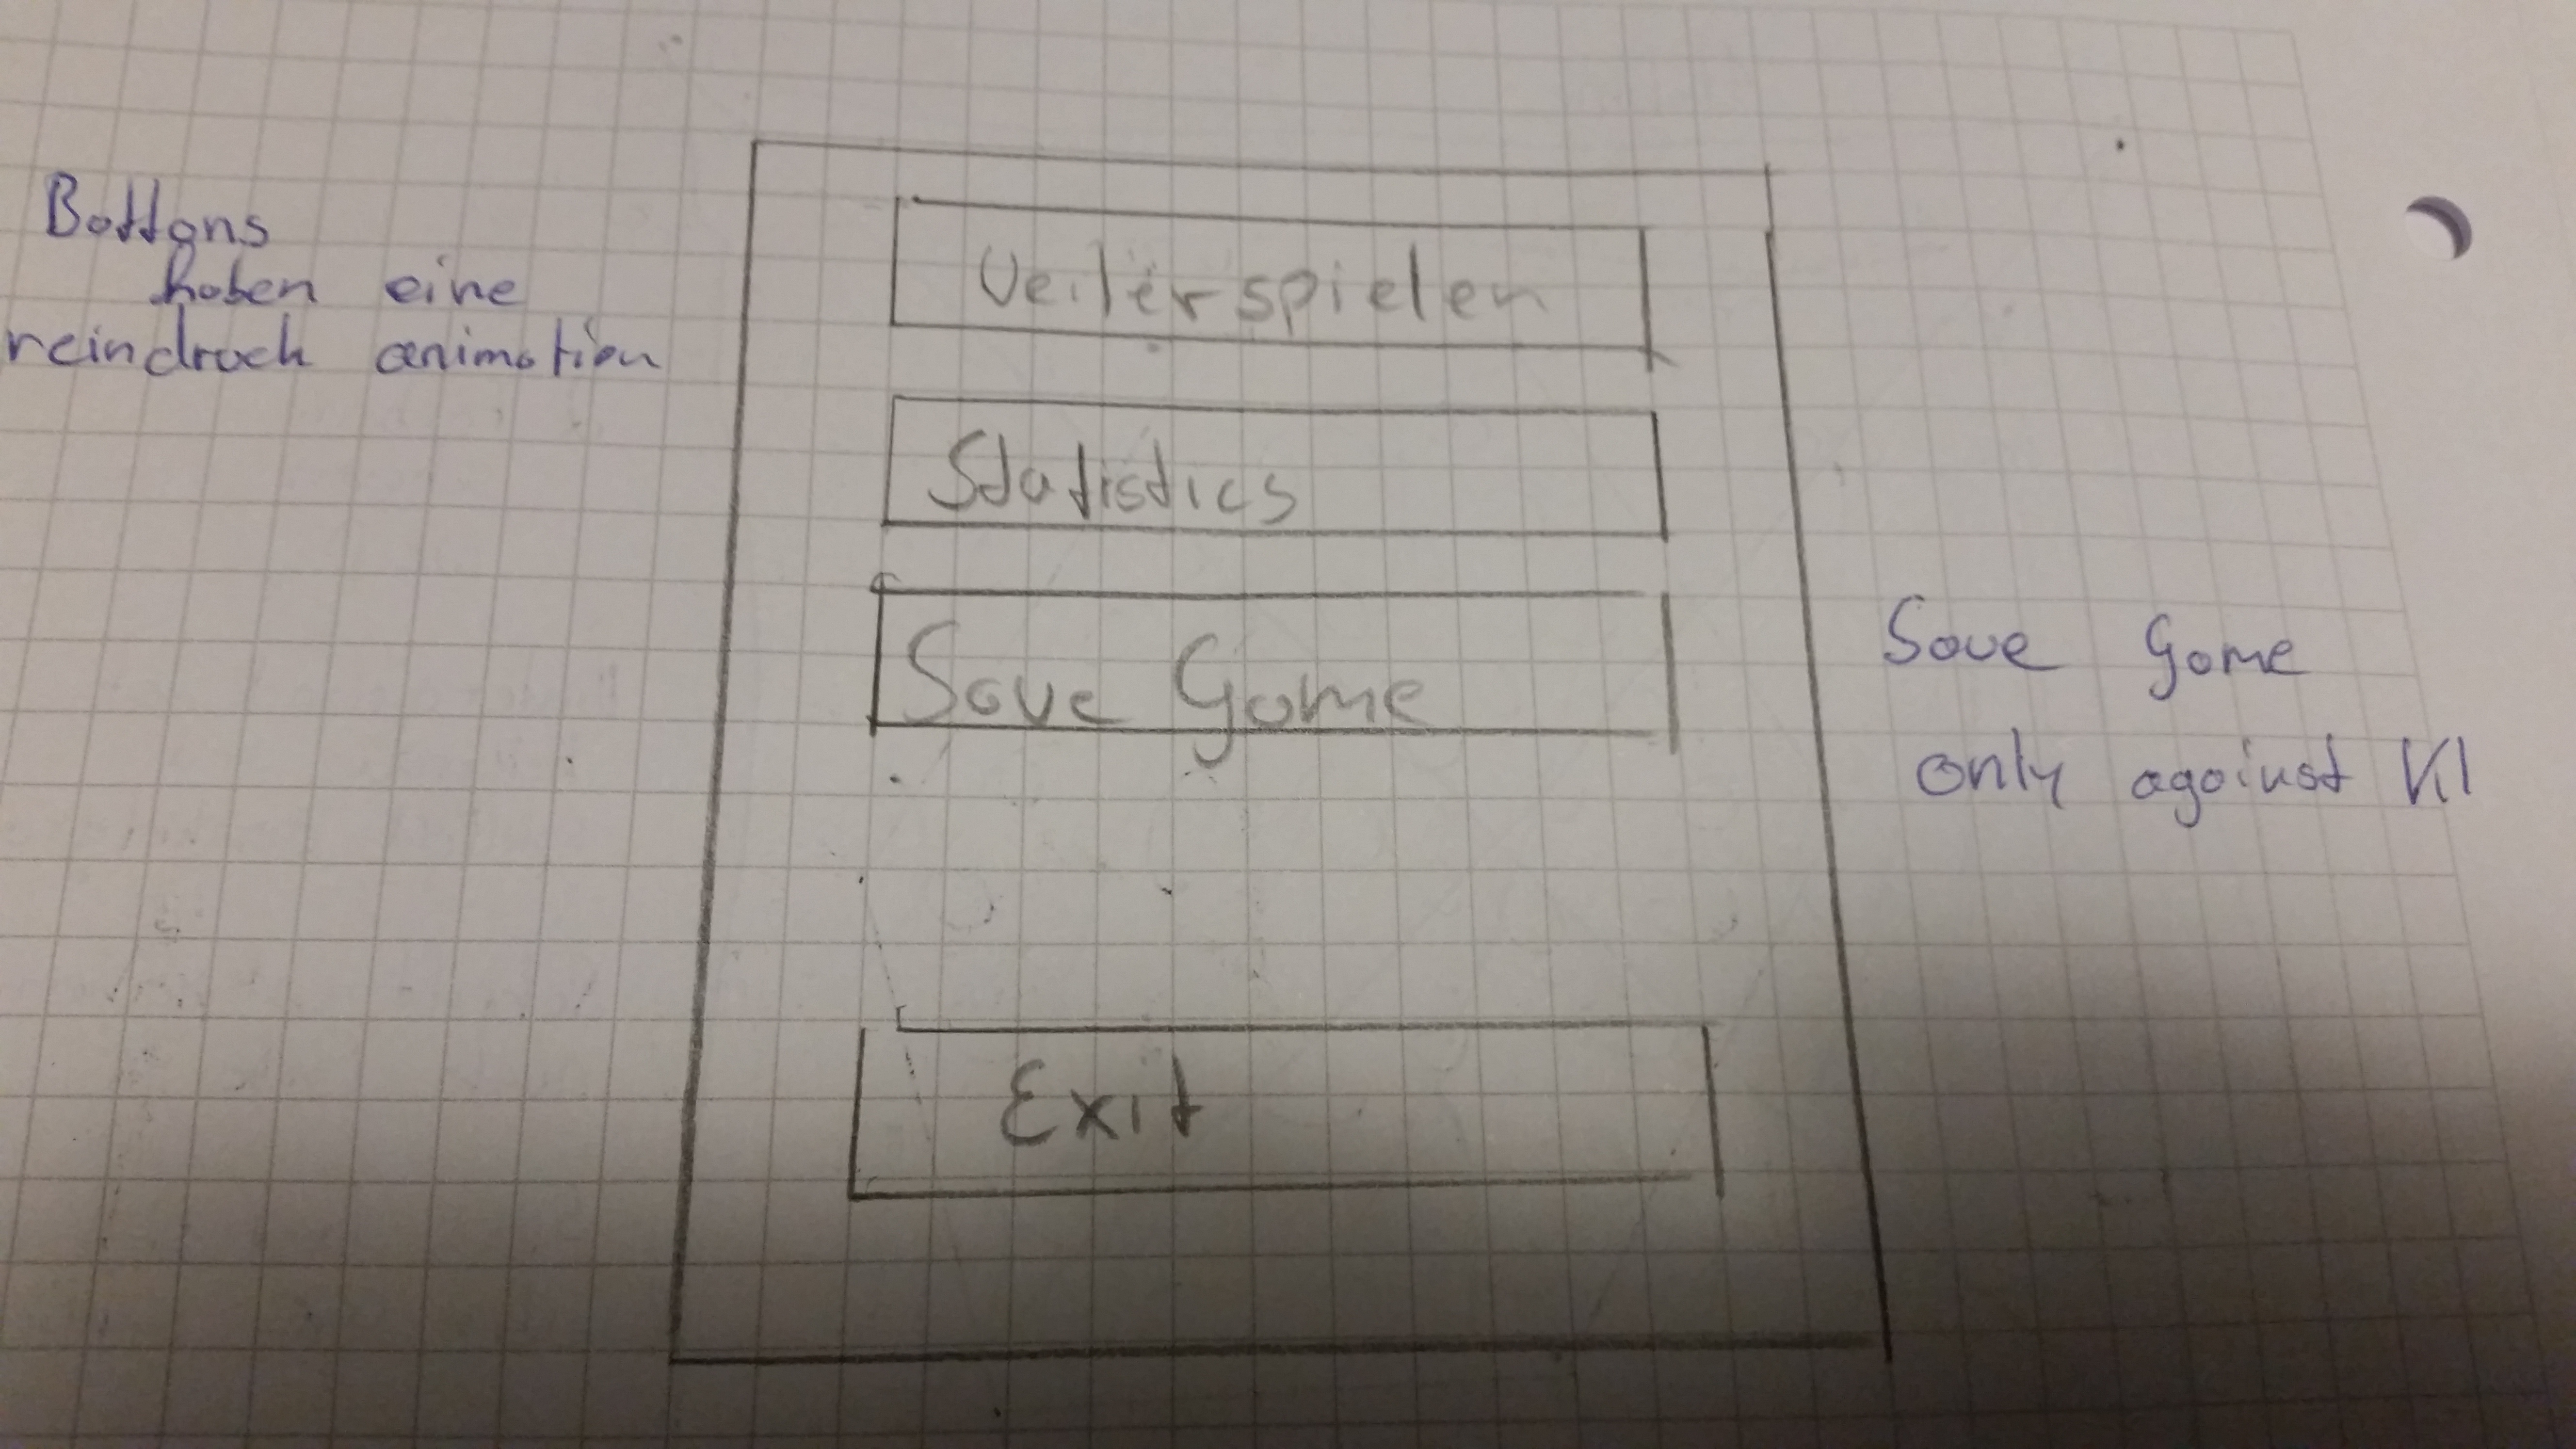 Buttons
haben eine
reindruck animation
Weiterspielen
Statistics
Save Game
Exit
Save Game
only against KI